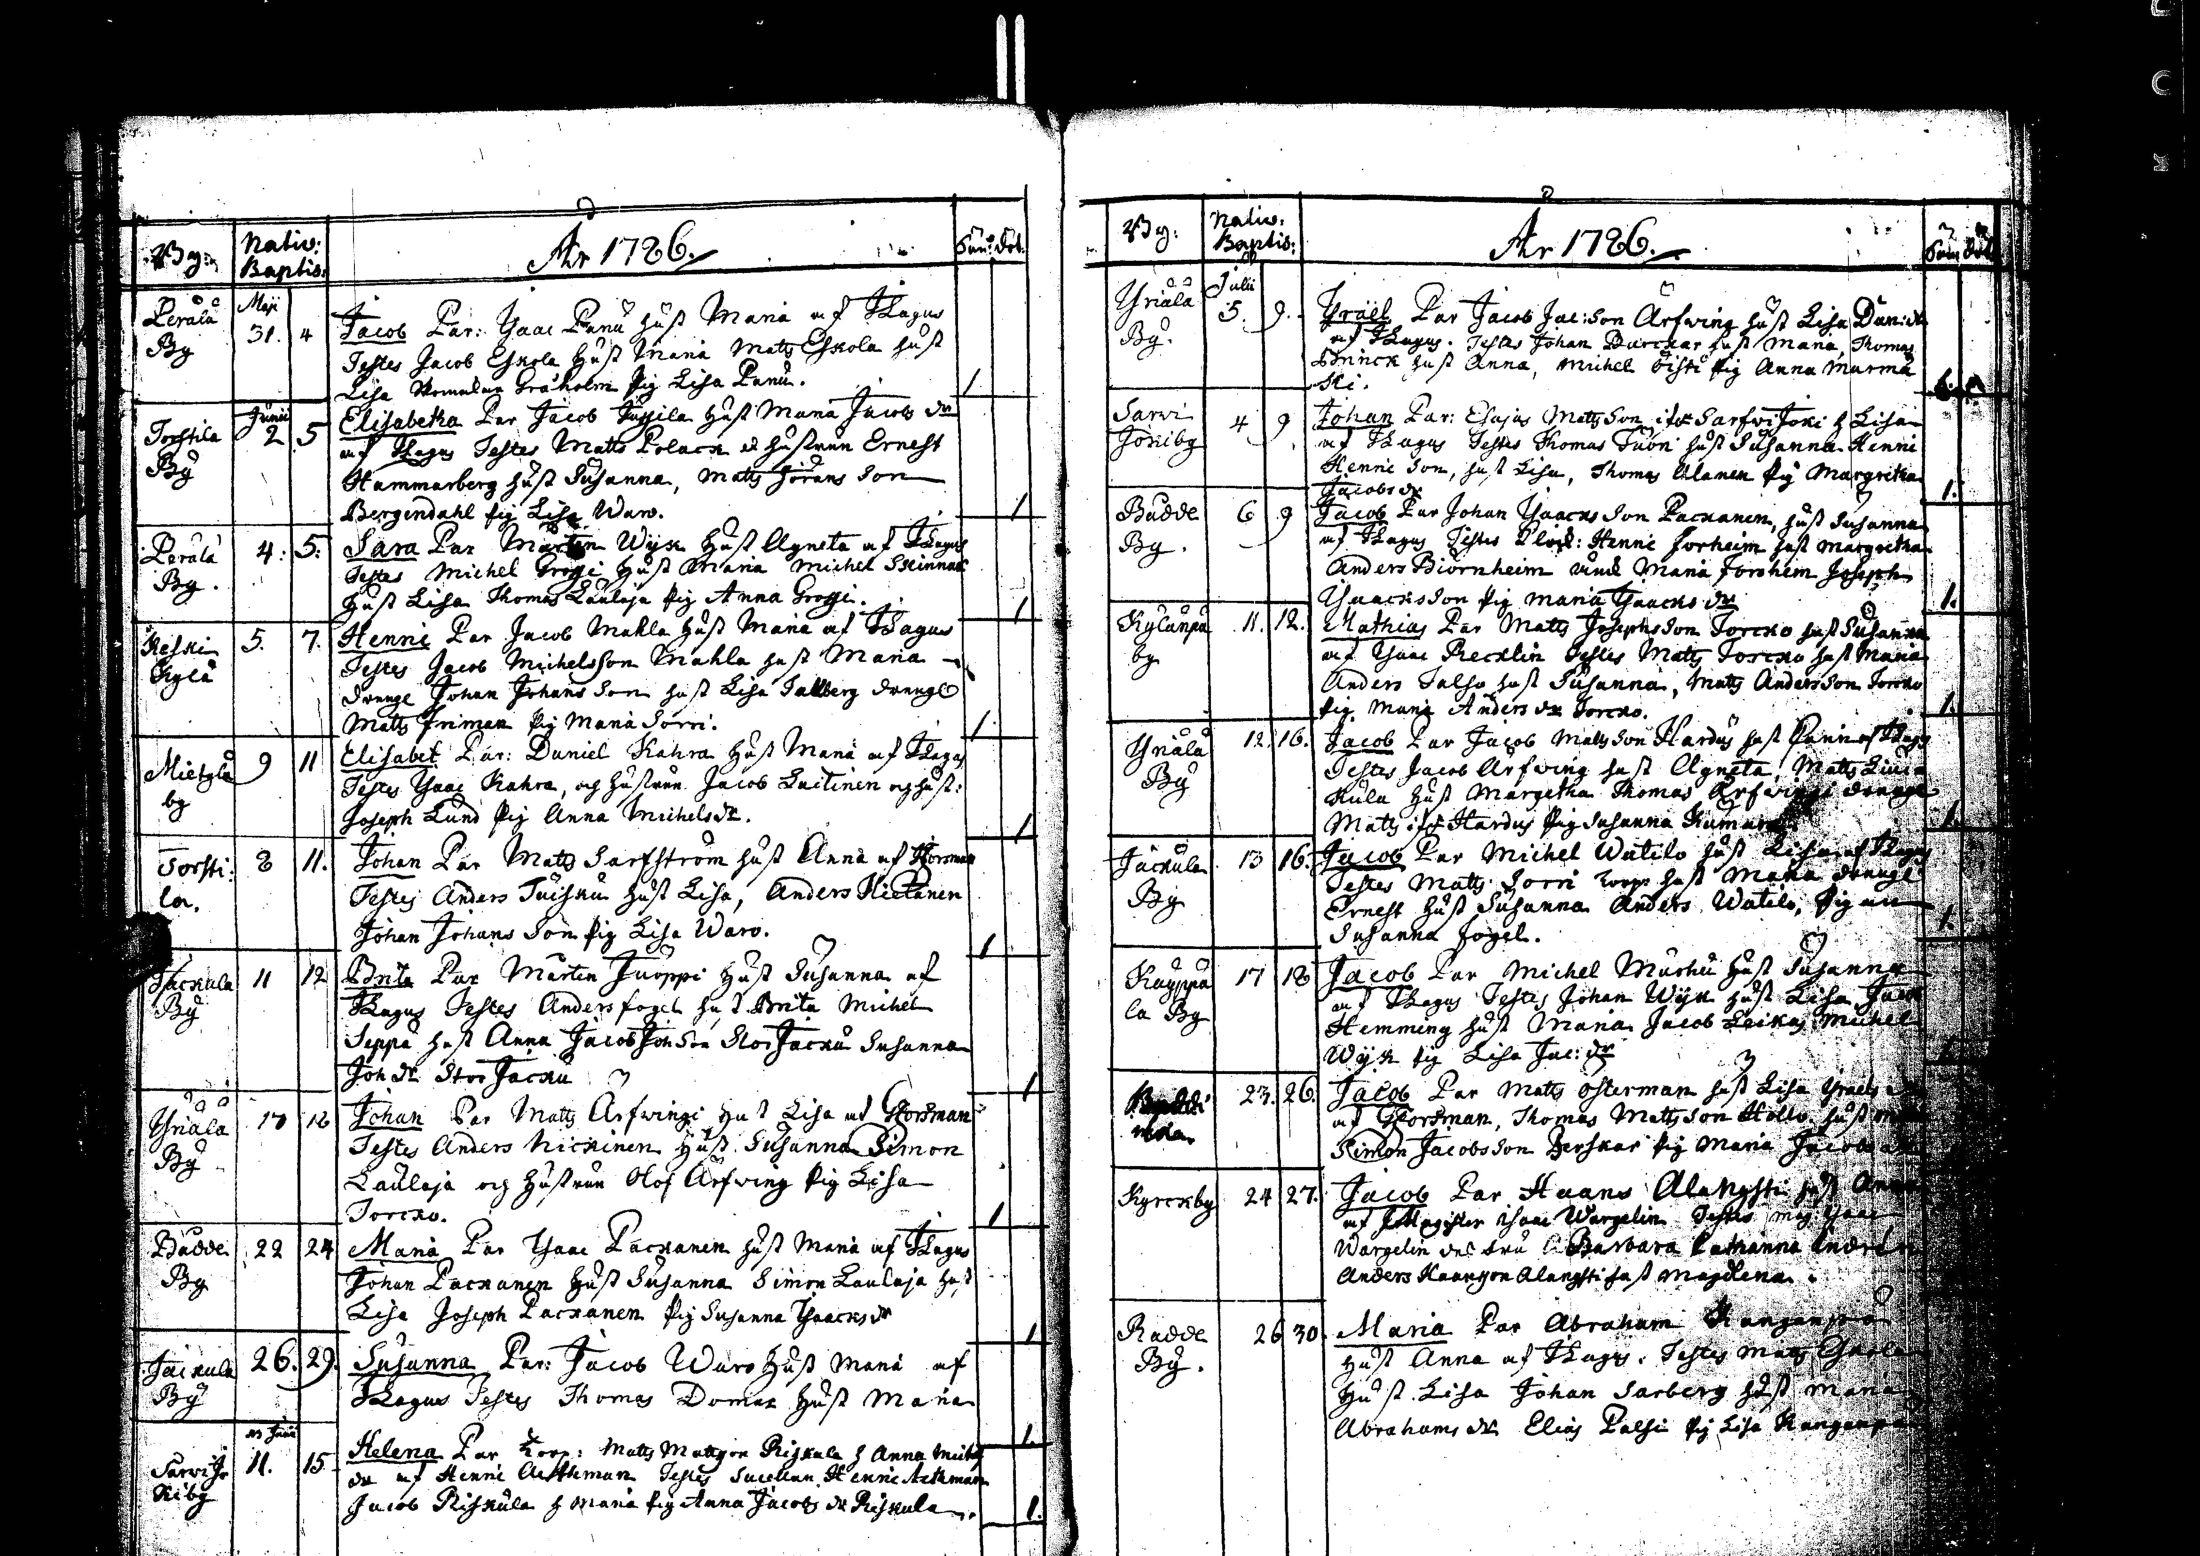 By: Nativ: Baptis: År 1786. Sön: Dot:
Perälä By Maji 31. 4 Jacob Par: Ysaac Panu Hust Maria af Thagus
Testes Jacob Eskola Hust Maria Matts Eskola hust
Lisa Gråholm pig Lisa Panu. 1
Torstila By Junii 2 5 Elisabetha Par Jacob Jussila Hust Maria Jacobs dr
af Thagus Testes Matts Polack och hustrun Ernest
Hammarberg Hust Susanna, Matts Jörans Son
Bergendahl pig Lisa Waro. 1
Perälä By. 4. 5. Sara Par Mårten Wyk Hust Agneta af Thagus
Testes Michel Grossi Hust Maria Michel Skinnar
Hust Lisa Thomas Laulaja pig Anna Grossi. 1
Keski Kylä 5. 7. Henric Par Jacob Mahla Hust Maria af Thagus
Testes Jacob Michelsson Mahla hust Maria
drenge Johan Johans Son hust Lisa Sallberg drengl
Matts pig Maria Sorri. 1
Mietylä by 9 11 Elisabet Par: Daniel Kahra Hust Maria af Thagus
Testes Ysaac Kahra, och hustrun Jacob Luitinen och hust:
Joseph Lund pig Anna Michels dr. 1
Torsti: la. 8 11. Johan Par Matts Sarfström hust Anna af Horsman
Testes Anders Tuisku hust Lisa, Anders Hietanen
Johan Johans Son pig Lisa Waro. 1
Jäckula By 11 12 Brita Par Mårten Juoppi Hust Susanna af
Thagus Testes Anders fogel hust Brita Michel
Seppä hust Anna Jacob Joh Son Stor Jacku Susanna
Joh dr Stor Jacku 1
Yriälä By 17 18 Johan Par Matts Arfwingi Hust Lisa af Horsman
Testes Anders Nickinen Hust Susanna Simon
Laulaja och Hustrun Olof Arfwing pig Lisa
Torcko. 1
Budde By 22 24 Maria Par Ysaac Packanen Hust Maria af Thagus
Johan Packanen Hust Susanna Simon Laulaja hust
Lisa Joseph Packanen pig Susanna Ysaacks dr 1
Jäckula By 26. 29. Susanna Par: Jacob Waro Hust Maria af
Thagus Testes Thomas Domar Hust Maria 1
Sarwijo kiby Junii 11. 15 Helena Par Korp: Matts Mattson Riskula h Anna Michels
dr af Henric Aethman Testes Henric Aethman
Jacob Riskula h Maria pig Anna Jacobs dr Riskula. 1.
By: Nativ: Baptis: År 1786. Sön Dot
Yriälä By. Julii 5. 9. Ysräel Par Jacob Jac: Son Arfwing hust Lisa Dan: dr
af Thagus. Testes Johan hust Maria, Thomas
Brinck hust Anna, Michel Oisti pig Anna Murma
ski.
Sarwi Jokiby 4 9 Johan Par: Esajas Matts Son Sarfwi Joki h Lisa
af Thagus Testes Thomas Tuori hust Susanna Henric
Henric Son, hust Lisa, Thomas Alanen pig Margretha
Jacobs dr 1.
Budde By. 6 9 Jacob Par Johan Ysaacks Son Packanen, hust Susanna
af Thagus Testes Henric Forheim hust Margretha
Anders Biörnheim Maria Forsheim Joseph
Ysaacks Son pig Maria Ysaacks dr 1.
Kylänpä by 11. 12. Mathias Par Matts Josephs Son Torcko hust Susanna
af Ysaac Recklin Testes Matts Torcko hust Maria
Anders Salho hust Susanna, Matts Anders Son Torcko
pig Maria Anders dr Torcko. 1.
Yriälä By 12. 16. Jacob Par Jacob Matts Son Hardus hust af Thagus
Testes Jacob Arfwing hust Agneta, Matts
kula hust Margetha Thomas Arfwingi drenge
Matts Hardus pig Susanna 1.
Jäckula By 13 16. Jacob Par Michel Watilo hust Lisa af Thagus
Testes Matts Sorri korp: hust Maria drengl
Ernest hust Susanna Anders Watilo, pig
Susanna Fogel. 1.
Kauppa la By 17 18 Jacob Par Michel Murku Hust Susanna
af Thagus Testes Johan Wyk hust Lisa Jacob
Hemming hust Maria Jacob Leikas Michel
Wyk pig Lisa Jac: dr
23. 26. Jacob Par Matts Osterman hust Lisa Ysraels
af Horsman, Thomas Matts Son Hollo, hust
Simon Jacobs Son pig Maria Jacobs
Kyrckby 24 27. Jacob Par Haans Alangsti hust Anna
af Magister Isaac Wargelin Testes Mag Ysaac
Wargelin des fru Barbara Catharina
Anders Alangsti hust Magdlena.
Radde By. 26 30. Maria Par Abraham Kanganpä
Hust Anna af Thagus. Testes Matts
Hust Lisa Johan Sarberg hust Maria
Abrahams dr Elias Palsi pig Lisa Kanganpä